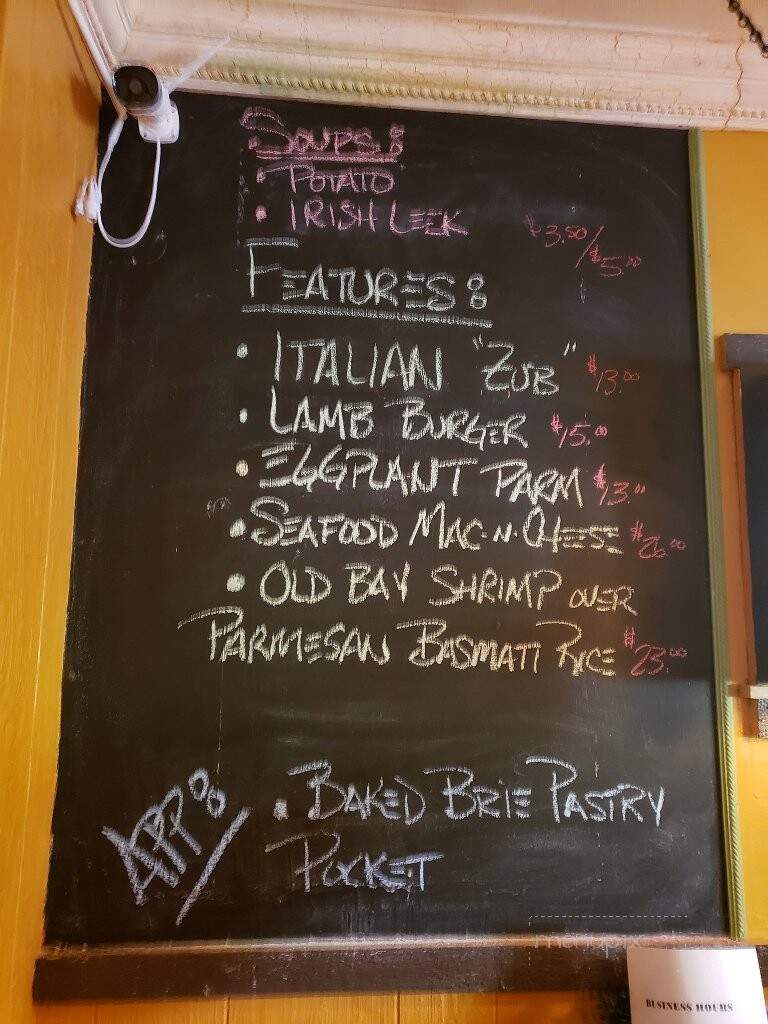 Soups:
• Potato
• Irish Leek $3.50/$5.00
Features:
• Italian "Zub" $13.00
• Lamb Burger $15.00
• Eggplant Parm $13.00
• Seafood Mac-n-Cheese $26.00
• Old Bay Shrimp over
Parmesan Basmati Rice $23.00
App:
• Baked Brie Pastry
Pocket
BUSINESS HOURS